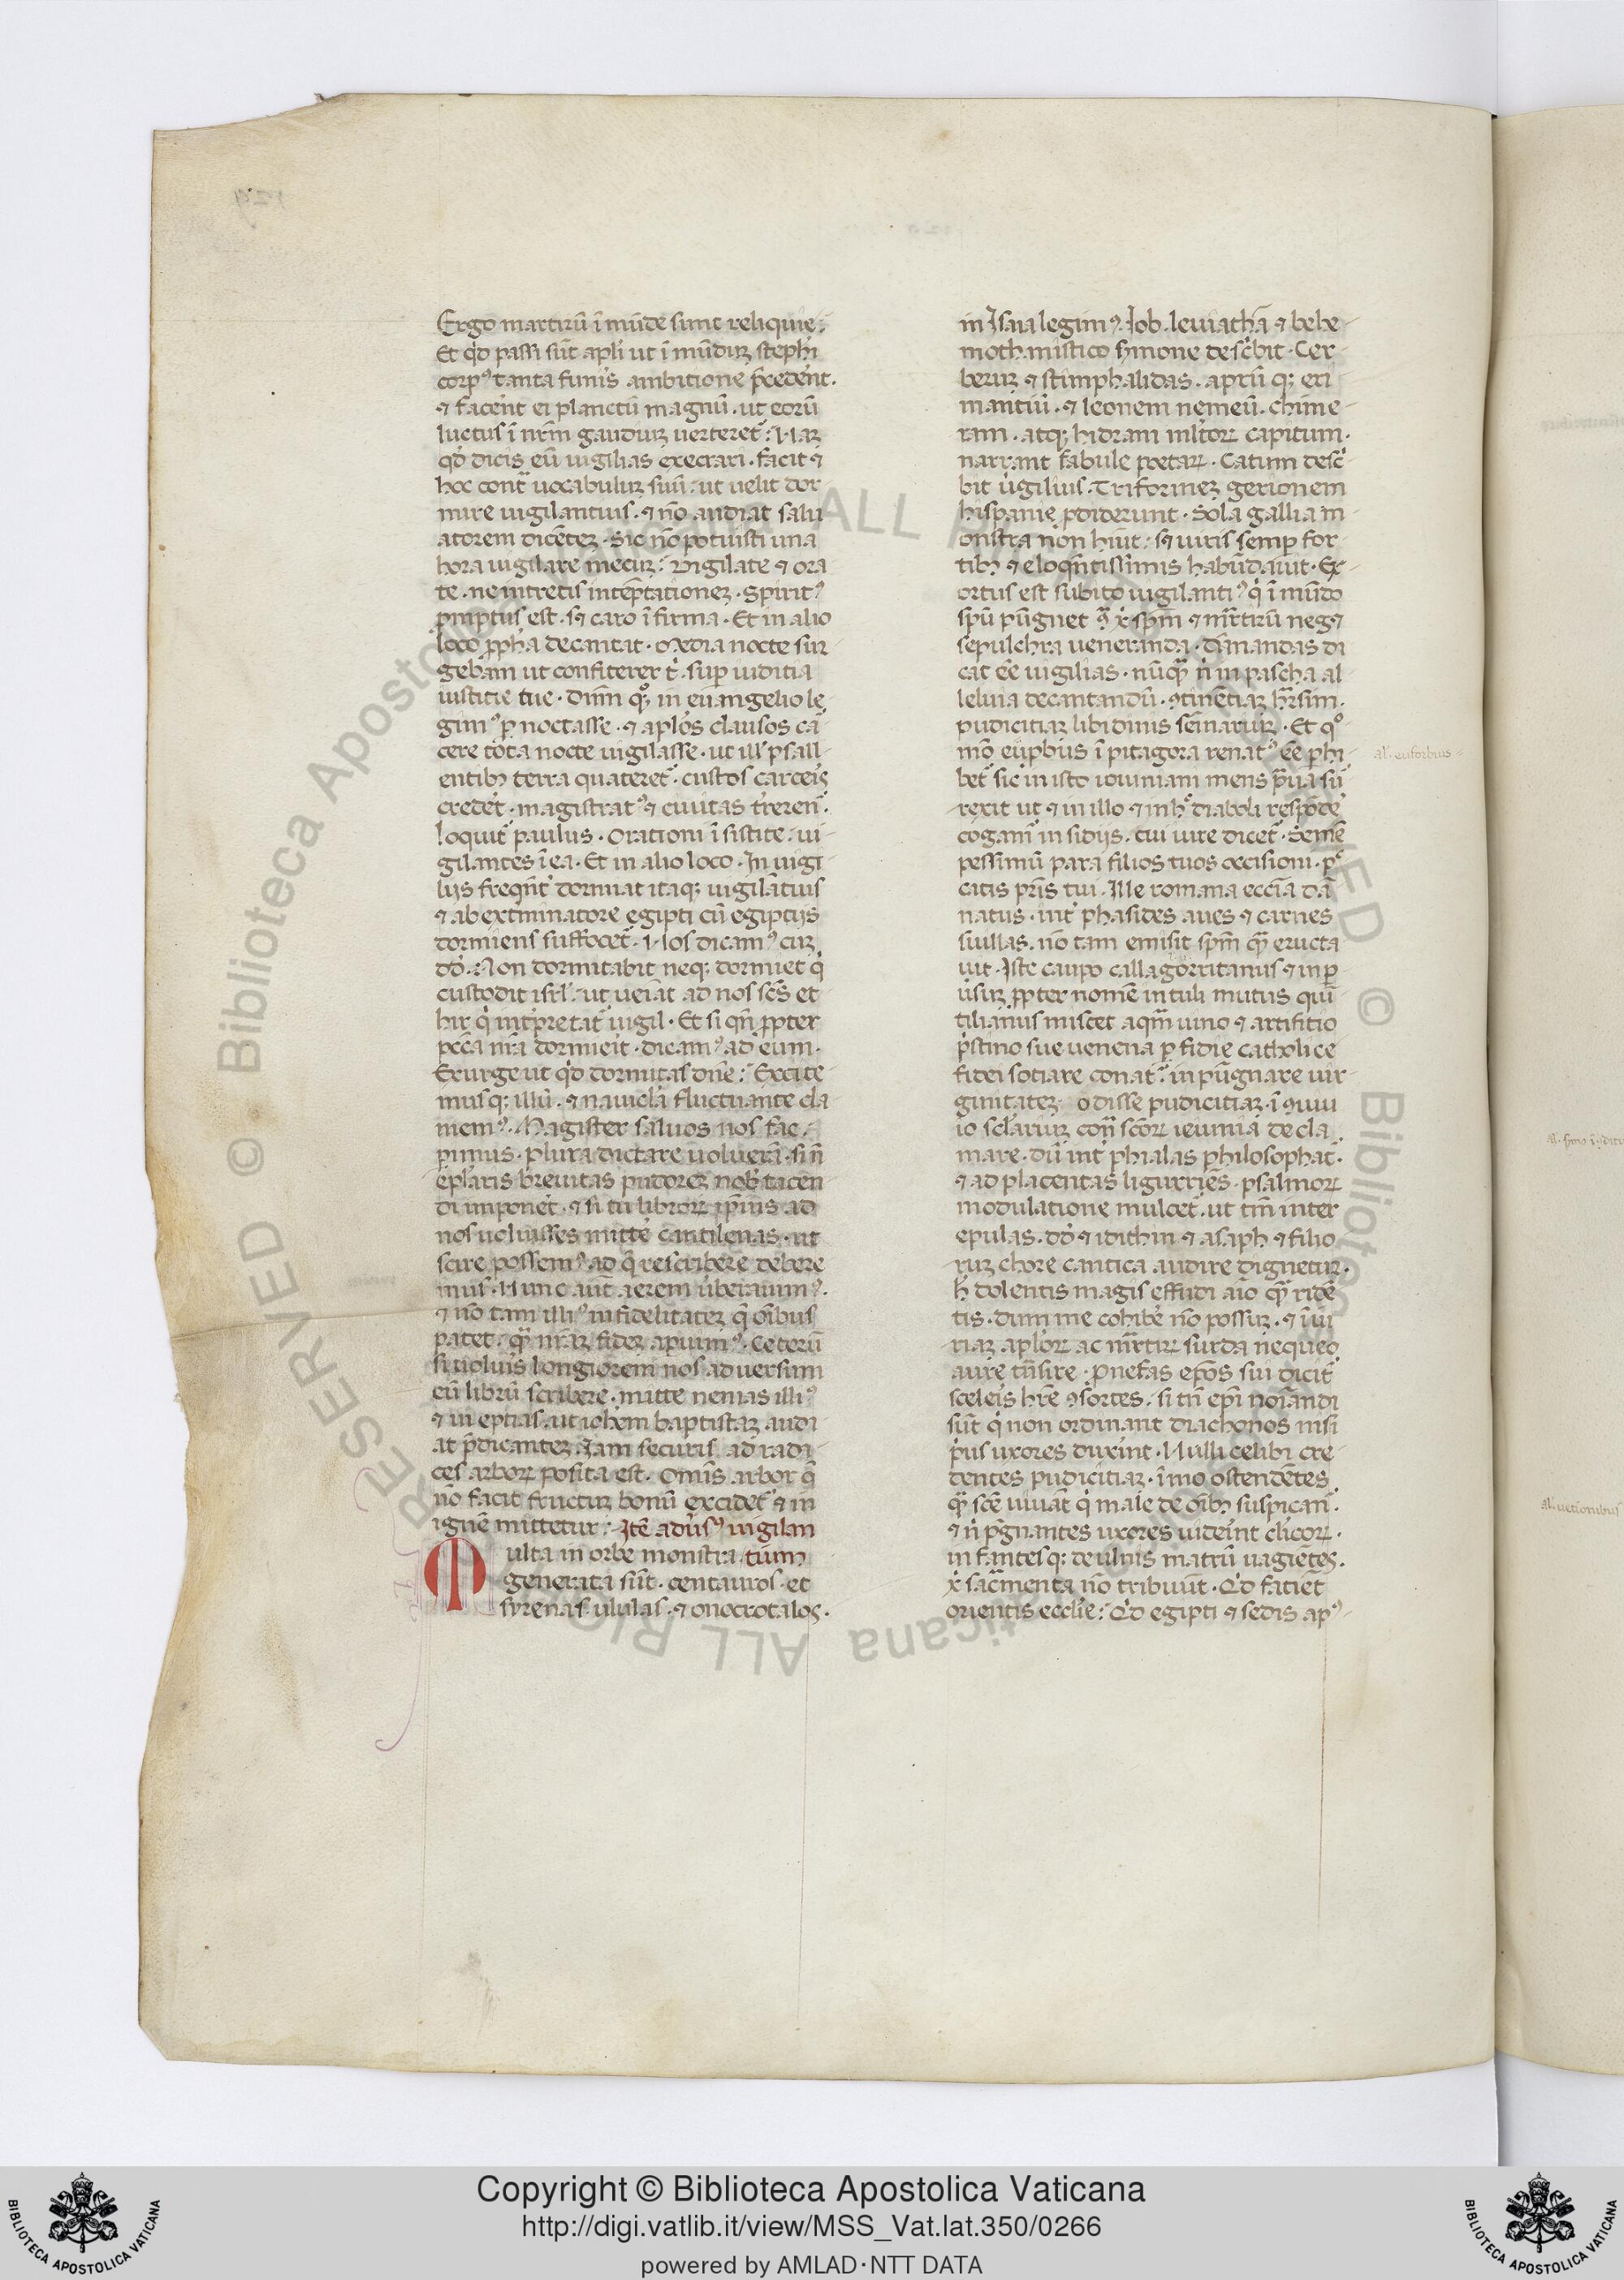 Ergo martirũ ĩmũde sunt reliquie:
Et qd̾ passi sũt apl̃i ut ĩmũduʒ steph̃i
corpꝰ tanta funis ambitione p̃cedẽt.
⁊ facẽnt ei planctũ magnũ. ut eorũ
luctus ĩ nr̃m gaudiuʒ uerteret᷑: Naʒ
qd̾ dicis eũ uigilias execrari. facit ⁊
hoc cont᷑ uocabuluʒ suũ. ut uelit dor
mire uigilantius. ⁊ nõ audiat salu
atorem dicẽteʒ. Sic nõ potuisti una
hora uigilare mecuʒ: Uigilate ⁊ ora
te. ne intretis in tẽptationeʒ. Spiritꝰ
p̃mptus est. sꝫ caro ĩfirma. Et in alio
loco ꝓph̃a decantat. Media nocte sur
gebam ut confiterer t̾. suꝑ iuditia
iustitie tue. Dnm̃ qͦꝫ in euãngelio le
gimꝰ ꝑnoctasse. ⁊ apl̃os clausos cã
cere tota nocte uigilasse. ut ill̾ psall
entibꝫ terra quateret᷑. custos carcẽis
credẽt. magistratꝰ ⁊ ciuitas t̃rerent᷑.
loquit᷑ paulus. Orationi ĩsistite. ui
gilantes ĩ ea. Et in alio loco. In uigi
lijs freqñt᷑ dormiat itaqꝫ uigilãtius
⁊ ab ext̾minatore egipti cũ egiptijs
dormiens suffocet᷑. Nos dicamꝰ cuʒ
dd̾. Non dormitabit neqꝫ dormiet q̾
custodit isr̃l. ut ueĩat ad nos sc̃s et
hir q̾ int̾pretat᷑ uigil. Et si qñ ꝓpter
pc̃ca nr̃a dormieĩt. dicamꝰ ad eum.
Exurge ut qd̾ dormitas dñe: Excite
musqꝫ illũ. ⁊ nauicl̃a fluctuante cla
memꝰ. Magister saluos nos fac.
pimus. plura dictare uoluerã. si ñ
eplãris breuitas pudoreʒ nob̾ tacen
di imponet. ⁊ si tu libroꝝ ip̃ius ad
nos uoluisses mitte᷑ cantilenas. ut
scire possemꝰ ad q̃ rescribere debere
mus. Nunc aut̃ aerem ũberauimꝰ.
⁊ nõ tam illiꝰ infidelitateʒ q̃ oĩbus
patet. qm̃ nr̃aʒ fideʒ apuimꝰ. Ceterũ
si uoluis longiorem nos aduersum
eũ librũ scribere. mitte nenias illiꝰ
⁊ in eptias. ut ioh̃em baptistaʒ audi
at p̃dicanteʒ. Iam securis ad radi
ces arboꝝ posita est. Omĩs arbor q̃
nõ facit fructuʒ bonũ excidet᷑ ⁊ in
ignẽ mittetur: Itẽ adũsꝰ uigilan
Multa in orbe monstra tium
generata sũt. centauros. et
syrenas. ululas. ⁊ onocrotalos.
in Isaia legimꝰ. Iob. leuiathã ⁊ behe
moth. mistico s̾mone desc̾bit. Cer
beruʒ ⁊ stimphalidas. aprũ qꝫ eri
mantiũ. ⁊ leonem nemeũ. chime
ram. atqꝫ hidram ml̾toꝝ capitum.
narrant fabule poetaꝝ. Catum desc̾
bit ũgilius. Triformeʒ gerionem
hispanie ꝓdiderunt. Sola gallia m
onstra non hũit: sꝫ uiris semꝑ for
tibꝫ ⁊ eloqñtissimis habũdauit. Ex
ortus est subito uigilantiꝰ q̾ ĩmũdo
spũ pũgnet q̃ x̾ spm̃ ⁊ mr̃tirũ neg̾⁊
sepulchra ueneranda. dãmandas di
cat eẽ uigilias. nũqm̃ n̾ in pascha al
leluia decantandũ. ꝯtinẽtiaʒ hr̃sim.
pudicitiaʒ libidinis semĩariuʒ. Et qͦ
mõ eũpbius ĩ pitagora renatꝰ eẽ ꝑhi
bet᷑ sic in isto iouiniani mens p̃ua sũ
rexit ut ⁊ in illo ⁊ in hͦ diaboli respõde
cogam̃ insidijs. cui iure dicet᷑. Semẽ
pessimũ para filios tuos occisioni. pͨ
catis pr̃is tui. Ille romana eccl̃ia dã
natus. int̾ phasides aues ⁊ carnes
suillas. nõ tam emisit spm̃ qm̃ eructa
uit. Iste caupo callagorritanus ⁊ in ꝑ
ũsuʒ ꝓpter nomẽ intuli mutus qui
tilianus miscet aqm̃ uino ⁊ artifitio
p̾stino sue uenena ꝑfidie catholice
fidei sotiare conat᷑. inpũgnare uir
ginitateʒ. odisse pudicitiaʒ. ĩ ꝯuiu
io scl̃ariuʒ cont᷑ sc̃oꝝ ieiunia decla
mare. dũ int̾ phialas philosophat᷑.
⁊ ad placentas ligurriẽs. psalmoꝝ
modulatione mulcet᷑. ut tm̃ inter
epulas. dd̾ ⁊ idithm ⁊ asaph ⁊ filio
ruʒ chore cantica audire dignetur.
h̾ dolentis magis effudi aĩo qm̃ ridẽ
tis. dum me cohibe᷑ nõ possuʒ. ⁊ ĩiu
riaʒ apl̃oꝝ ac mr̃tiꝝ surda nequeo
aure tñsire. Pnefas ep̃os sui dicit᷑
sceleis hr̃e ꝯsortes. si tñ ep̃i noĩandi
sũt q̾ non ordinant diachonos nisi
p̾us uxores duxeĩnt. Nulli celibi cre
dentes pudicitiaʒ. ĩmo ostendẽtes
qm̃ sc̃e uiuãt q̾ male de oĩbꝫ suspicant᷑.
⁊ n̾ p̃gnantes uxores uideĩnt cl̾icoꝝ.
in fantesqꝫ de ulnis matrũ uagiẽtes.
x̾ sac̃menta nõ tribuũt. Qd̾ fatiẽt
orientis eccl̃ie: Qd̾ egipti ⁊ sedis apꝰ
al. euforbius
Copyright © Biblioteca Apostolica Vaticana
http://digi.vatlib.it/view/MSS_Vat.lat.350/0266
powered by AMLAD·NTT DATA